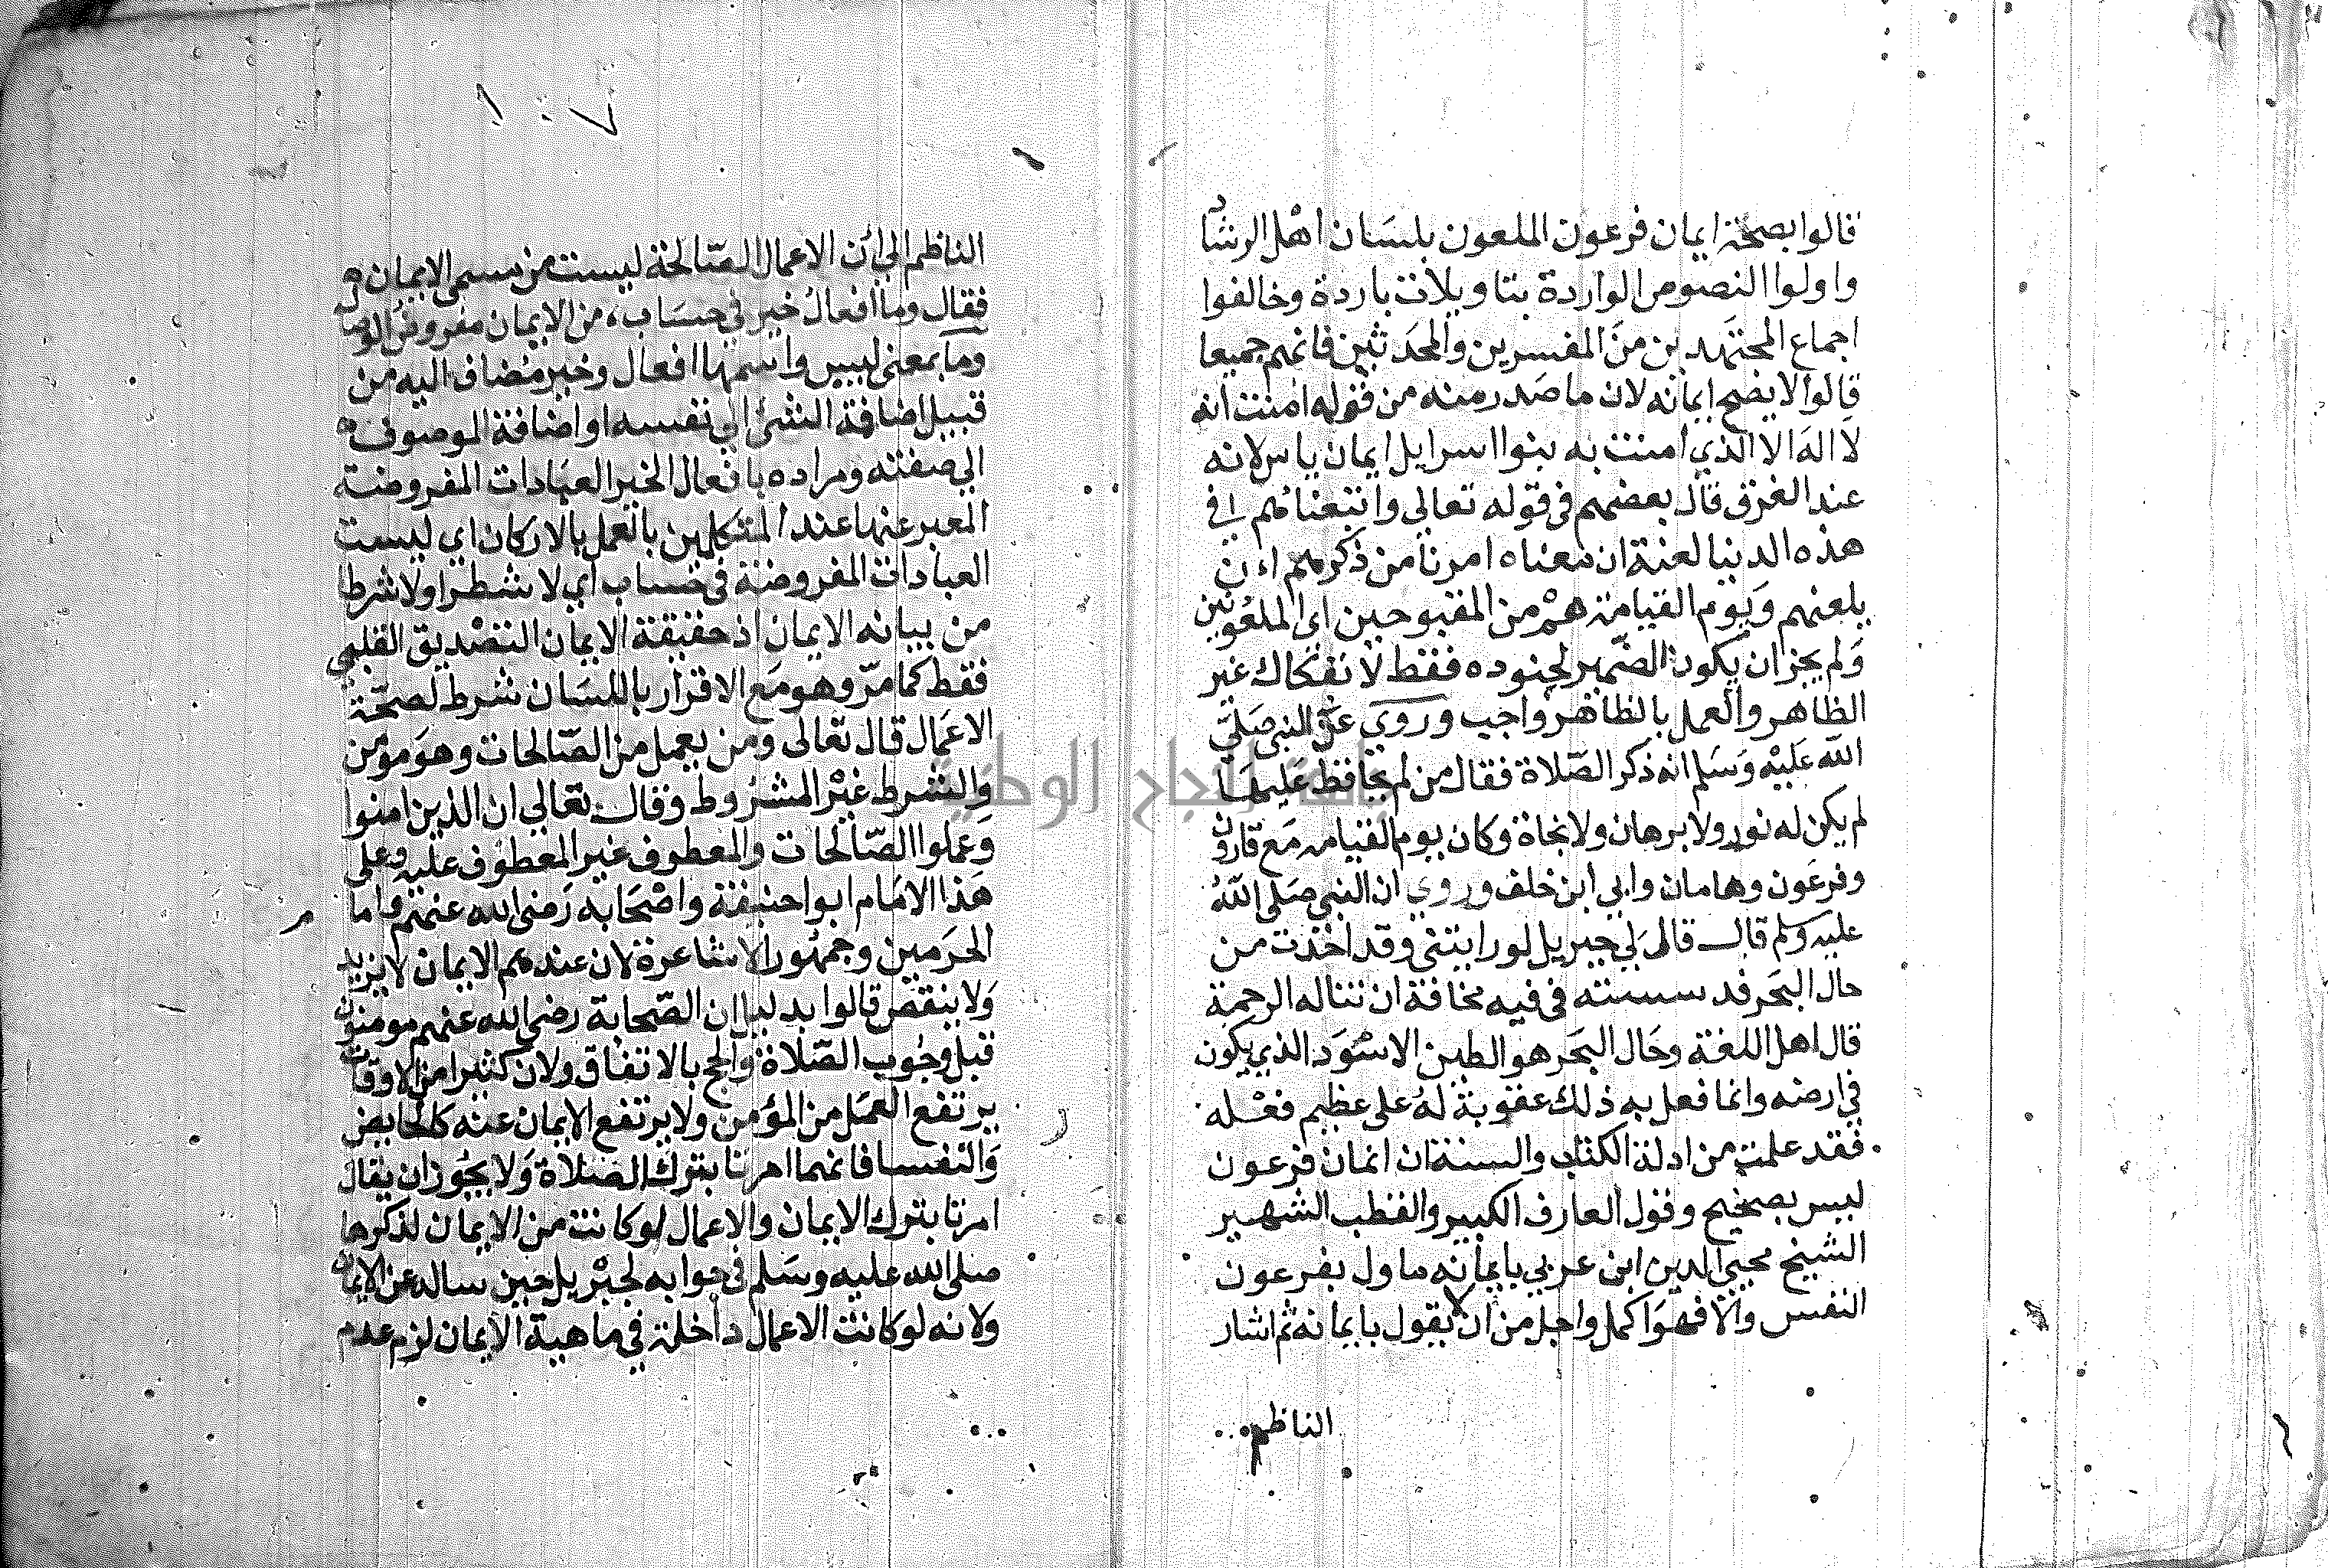 قالوا بصحة ايمان فرعون الملعون بلسان اهل الرشاد
واولوا النصوص الواردة بتاويلات باردة وخالفوا
اجماع المجتهدين من المفسرين والمحدثين فانهم جميعا
قالوا لا يصح ايمانه لان ما صدر منه من قوله امنت انه
لا اله الا الذي امنت به بنوا اسرايل ايمان ياس لانه
عند الغرق قال بعضهم في قوله تعالي واتبعناهم في
هذه الدنيا لعنة ان معناه امرنا من ذكرهم ان
يلعنهم ويوم القيامة هم من المقبوحين اي الملعونين
ولم يجز ان يكون الضمير لجنوده فقط لانفكاك غير
الظاهر والعمل بالظاهر واجب وروي عن النبي صلي
الله عليه وسلم انه ذكر الصلاة فقال من لم يحافظ عليها
لم يكن له نور ولا برهان ولا نجاة وكان يوم القيامة مع قارون
وفرعون وهامان وابي ابن خلف وروي ان النبي صلي الله
عليه وسلم قال قال لي جبريل لو رايتني وقد اخذت من
حال البحر فدسسته في فيه مخافة ان تناله الرحمة
قال اهل اللغة وحال البحر هو الطين الاسود الذي يكون
في ارضه وانما فعل به ذلك عقوبة له على عظيم فعله
فقد علمت من ادلة الكتاب والسنة ان ايمان فرعون
ليس بصحيح وقول العارف الكبير والقطب الشهير
الشيخ محيي الدين ابن عربي بايمانه ماول بفرعون
النفس والا فهو اكمل واجل من ان يقول بايمانه ثم اشار
الناظم
١٠٧
الناظم الي ان الاعمال الصالحة ليست من مسمي الايمان
فقال وما افعال خير في حساب من الايمان مفروض الوصال
وما بمعني ليس واسمها افعال وخير مضاف اليه من
قبيل اضافة الشئ الي نفسه او اضافة الموصوف
الي صفته ومراده بافعال الخير العبادات المفروضة
المعبر عنها عند المتكلمين بالعمل بالاركان اي ليست
العبادات المفروضة في حساب اي لا شطرا ولا شرطا
من بيانه الايمان اذ حقيقة الايمان التصديق القلبي
فقط كما مر وهو مع الاقرار باللسان شرط لصحة
الاعمال قال تعالى ومن يعمل من الصالحات وهو مومن
والشرط غير المشروط وقال تعالي ان الذين امنوا
وعملوا الصالحات والمعطوف غير المعطوف عليه وعلى
هذا الامام ابوا حنيفة واصحابه رضي الله عنهم واما
الحرمين وجمهور الاشاعرة لان عندهم الايمان لا يزيد
ولا ينقص قالوا بدليل ان الصحابة رضي الله عنهم مومنون
قبل وجوب الصلاة والحج بالاتفاق ولان كثيرا من الاوقات
يرتفع العمل من المؤمن ولا يرتفع الايمان عنه كالحايض
والنفسا فانهما امرتا بترك الصلاة ولا يجوز ان يقال
امرتا بترك الايمان والاعمال لو كانت من الايمان لذكرها
صلى الله عليه وسلم في جوابه لجبريل حين ساله عن الايمان
ولانه لو كانت الاعمال داخلة في ماهية الايمان لزم عدم